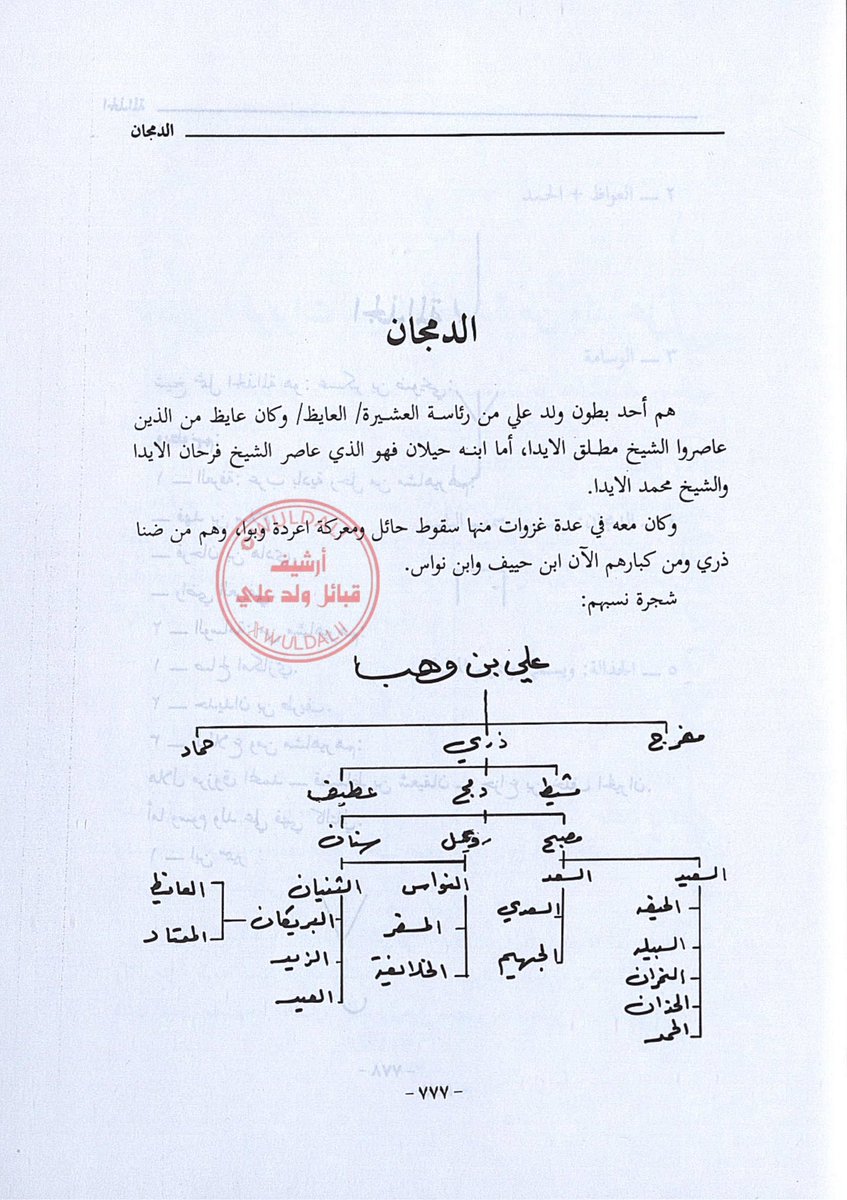 الدمجان
الدمجان
هم أحد بطون ولد علي من رئاسة العشيرة/ العايظ/ وكان عايظ من الذين
عاصروا الشيخ مطلق الايدا، أما ابنه حيلان فهو الذي عاصر الشيخ فرحان الايدا
والشيخ محمد الايدا.
وكان معه في عدة غزوات منها سقوط حائل ومعركة اعردة وبوا، وهم من ضنا
ذري ومن كبارهم الآن ابن حييف وابن نواس.
شجرة نسبهم:
@WULDALI
أرشيف
قبائل ولد علي
WULDALI
علي بن وهب
مفرج ذري حماد
مشيط دمج عطيف
مصبح رويحل سنان
السعيد السعد النواس الثنيان العائظ
الحيفه السعدي المسفر البريكان المعتاد
السبيله الجهيم الخلائفية الزيد
النمران العيد
الحذان
الحمد
-٧٧٧-